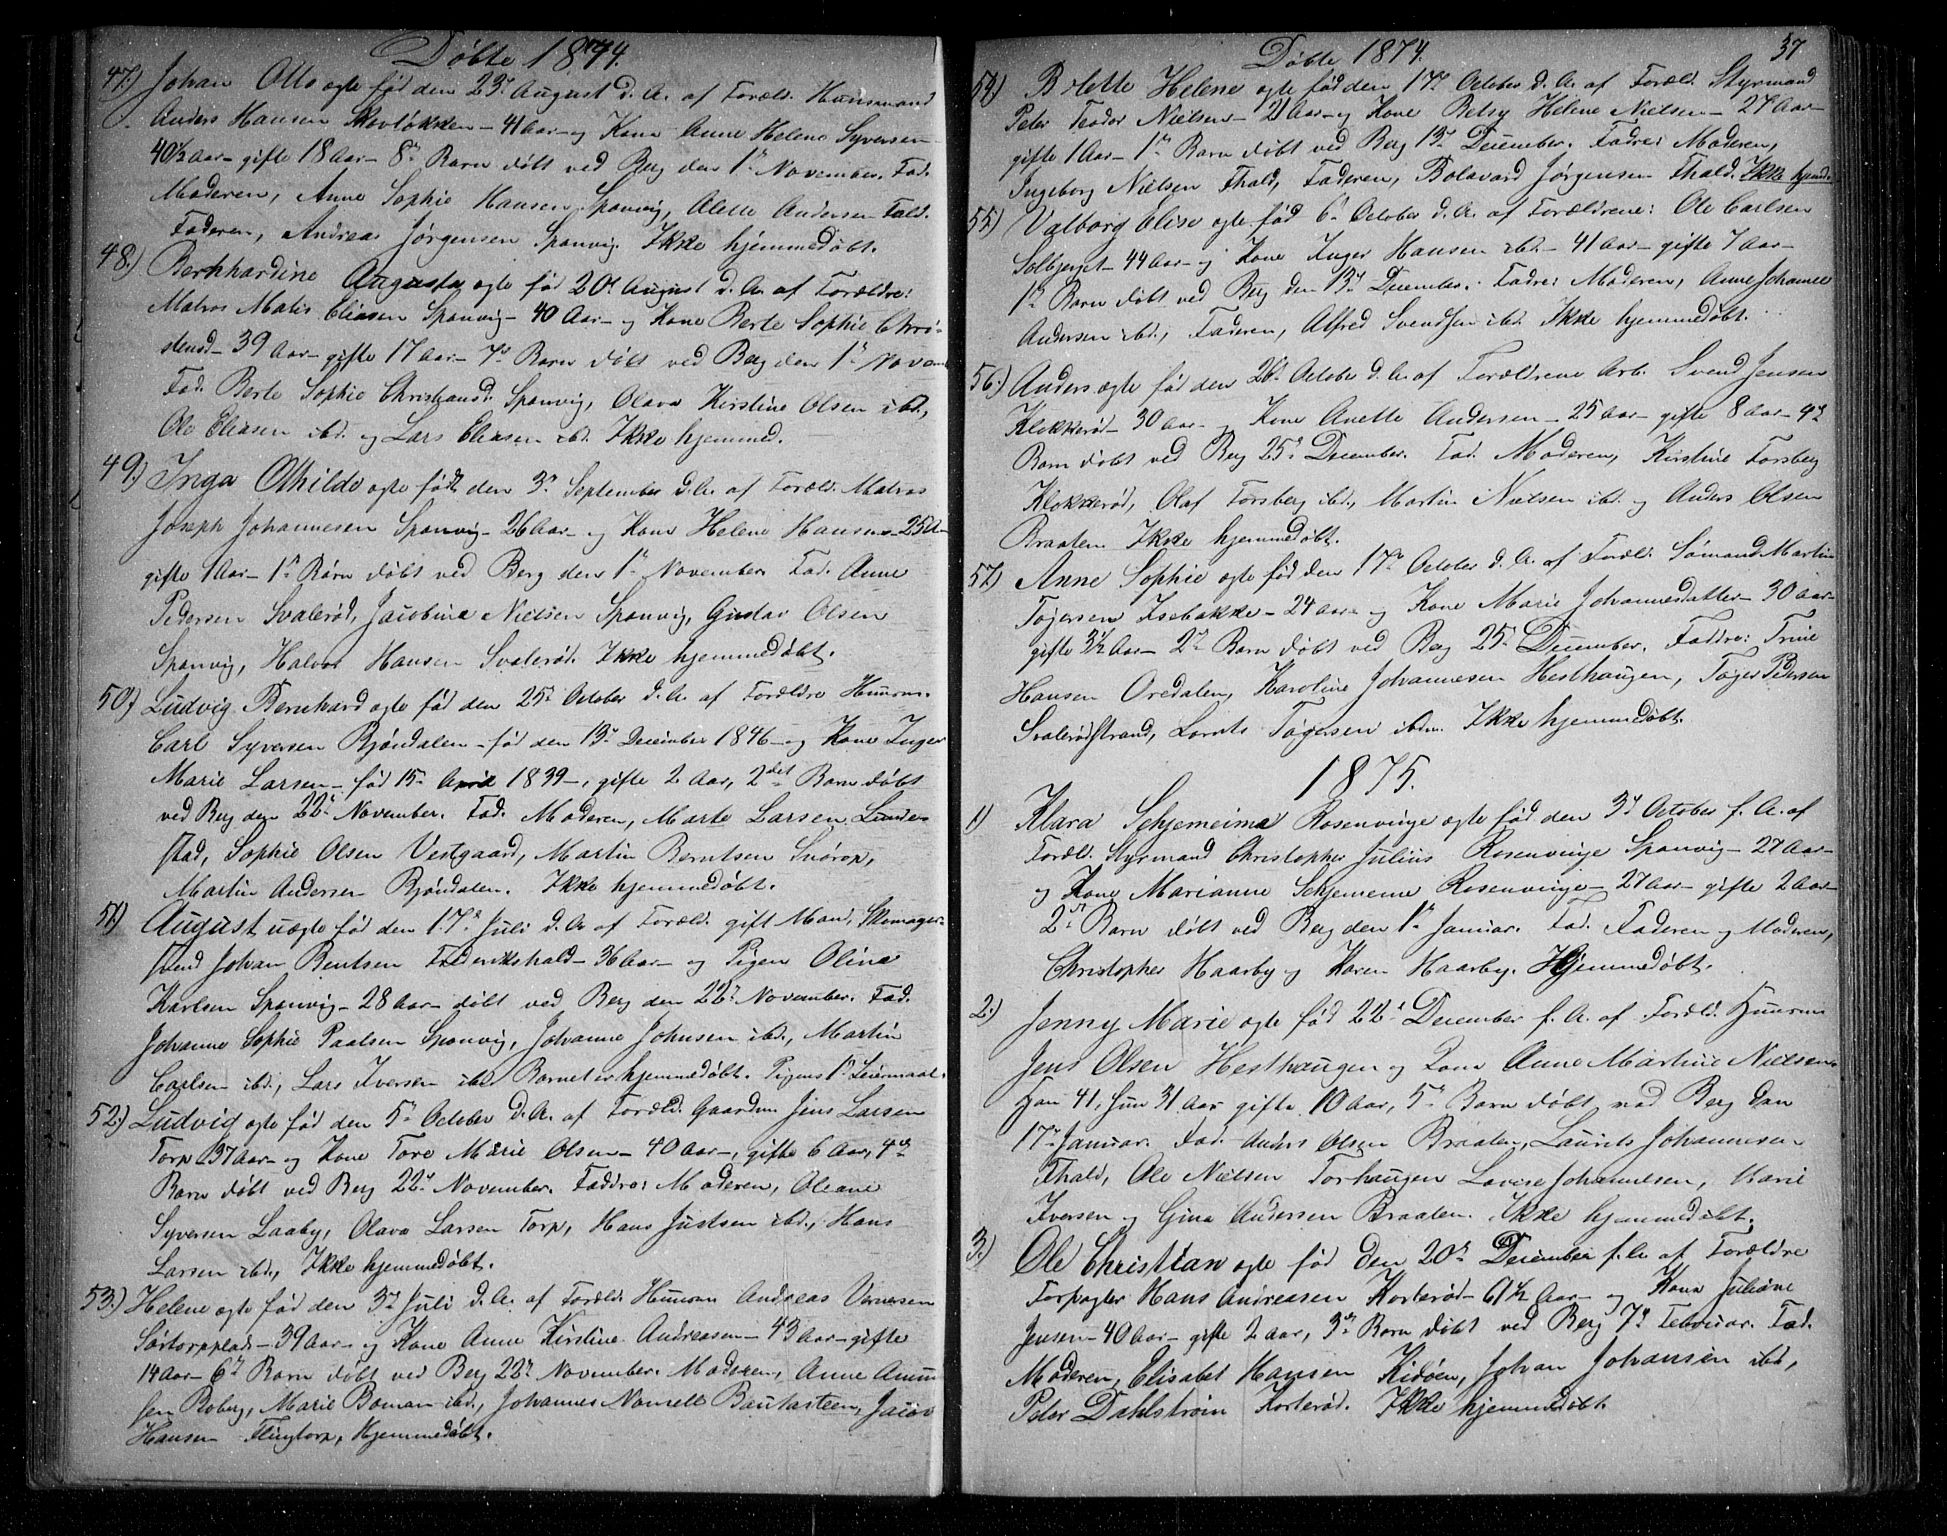 Døbte 1874.
47.) Johan Otto ægte født den 23de August d. A. af Foræld. Huusmand
Anders Hansen Skovløkken – 41 Aar – og Kone Anne Helene Syversen
40½ Aar – gifte 18 Aar – 8de Barn døbt ved Berg den 1ste November. Fad.
Moderen, Anne Sophie Hansen Sponvig, Alette Andersen Fald.
Faderen, Andreas Jørgensen Sponvig. Ikke hjemmedøbt.
48.) Bernhardine Augusta ægte fød 20de August d. A. af Forældre:
Matros Matis Eliasen Sponvig – 40 Aar – og Kone Berte Sophie Chri-
stensd – 39 Aar – gifte 17 Aar – 7de Barn døbt ved Berg den 1ste Novem
Fad. Berte Sophie Christiansd. Sponvig, Olava Kirstine Olsen ibd.,
Ole Eliasen ibd. og Lars Eliasen ibd. Ikke hjemmed.
49.) Inga Othilde ægte født den 3de September d. A. af Foræld. Matros
Joseph Johannesen Sponvig – 26 Aar – og Kone Helene Hansen – 25 A –
gifte 1 Aar – 1ste Barn døbt ved Berg den 1ste November. Fad. Anne
Pedersen Svalerød, Jacobine Nielsen Sponvig, Gustav Olsen
Sponvig, Halvor Hansen Svalerød. Ikke hjemmedøbt.
50.) Ludvig Bernhard ægte fød den 25de October d. A. af Forældre Huusm.
Carl Syversen Bjøndalen – fød den 13de December 1846 – og Kone Inger
Marie Larsen – fød 15de April 1839 –, gifte 2 Aar, 2det Barn døbt
ved Berg den 22de November. Fad. Moderen, Marte Larsen Lunde-
stad, Sophie Olsen Vestgaard, Martin Berntsen
Martin Andersen Bjøndalen. Ikke hjemmedøbt.
51.) August uægte fød den 17de Juli d. A. af Foræld. gift Mand, Skomager-
svend Johan Bentsen Frederikshald – 36 Aar – og Pigen Oline
Karlsen Sponvig – 28 Aar – døbt ved Berg den 22de November. Fad.
Johanne Sophie Paalsen Sponvig, Johanne Johnsen ibd., Martin
Carlsen ibd., Lars Iversen ibd. Barnet er hjemmedøbt. Pigens 1ste Leiermaal.
52.) Ludvig ægte fød den 5te October d. A. af Foræld. Gaardm. Jens Larsen
Torp 37 Aar – og Kone Tore Marie Olsen – 40 Aar –, gifte 6 Aar, 4de
Barn døbt ved Berg 22de November. Faddre: Moderen, Oleane
Syversen Laaby, Olava Larsen Torp, Hans Justsen ibd., Hans
Larsen ibd., Ikke hjemmedøbt.
53.) Helene ægte fød den 3de Juli d. A. af Foræld. Huusm. Andreas
Sørtorpplads – 39 Aar – og Kone Anne Kirstine Andreasen – 43 Aar – gifte
14 Aar – 6te Barn døbt ved Berg 22de November. Moderen, Anne Amun
sen Roberg, Marie Boman ibd., Johannes Bautasteen, Jacob
Hansen Hjemmedøbt.
Døbte 1874.
37
54.) Bolette Helene ægte fød den 17de October d. A. af Foræld. Styrmand
Peter Teodor Nielsen – 21 Aar – og Kone Betsy Helene Nielsen – 27 Aar –
gifte 1 Aar – 1ste Barn døbt ved Berg 13de December. Fadre: Moderen,
Ingeborg Nielsen Fhald, Faderen, Jørgensen Fhald. Ikke hjemd.
55.) Valborg Elise ægte fød 6te October d. A. af Forældrene: Ole Carlsen
Solbjerget – 44 Aar – og Kone Inger Hansen ibd. – 41 Aar – gifte 7 Aar –
1ste Barn døbt ved Berg den 13de December. Fadre: Moderen, Anne Johanne
Andersen ibd., Faderen, Alfred Svendsen ibd. Ikke hjemmedøbt.
56.) Anders ægte fød den 26de October d. A. af Forældrene Arb. Svend Jensen
Klokkerød – 30 Aar – og Kone Anette Andersen – 25 Aar – gifte 8 Aar – 4de
Barn døbt ved Berg 25de December. Fad. Moderen, Kirstine Forsberg
Klokkerød, Olaf Forsberg ibd., Martin Nielsen ibd. og Anders Olsen
Braaten. Ikke hjemmedøbt.
57.) Anne Sophie ægte fød den 17de October d. A. af Foræld: Sømand Martin
Tøgersen Isebakke – 24 Aar – og Kone Marie Johannesdatter – 30 Aar –
gifte 3½ Aar – 2det Barn døbt ved Berg 25de December. Faddre: Trine
Hansen Oredalen, Karoline Johannesen Hesthaugen, Tøger Pedersen
Svalerødstrand, Lorents Tøgersen ibdm. Ikke hjemmedøbt.
1875.
1) Klara Schjemeima Rosenvinge ægte fød den 3de October f. A. af
Foræld. Styrmand Christopher Julius Rosenvinge Sponvig – 27 Aar –
og Kone Marianne Schjemeine Rosenvinge – 27 Aar – gifte 2 Aar –
2det Barn døbt ved Berg den 1ste Januar. Fad. Faderen og Moderen,
Christopher Haarby og Karen Haarby. Hjemmedøbt.
2.) Jenny Marie ægte fød 22de December f. A. af Foræld. Huusm
Jens Olsen Hesthaugen og Kone Anne Martine Nielsen.
Han 41, hun 31 Aar gifte 10 Aar, 5te Barn døbt ved Berg den
17de Januar. Fad. Anders Olsen Braaten, Laurits Johannesen
Fhald, Ole Nielsen Torhaugen Lovise Johannesen, Marie
Iversen og Gina Andersen Braaten. Ikke hjemmedøbt.
3.) Ole Christian ægte fød den 20de December f. A. af Forældre
Forpagter Hans Andreasen Korterød – 61½ Aar – og Kone Juliane
Jensen – 40 Aar – gifte 2 Aar, 3die Barn døbt ved Berg 7de Februar. Fad.
Moderen, Elisabet Hansen Kidøen, Johan Johansen ibd.,
Peter Dahlstrøm Korterød. Ikke hjemmedøbt.